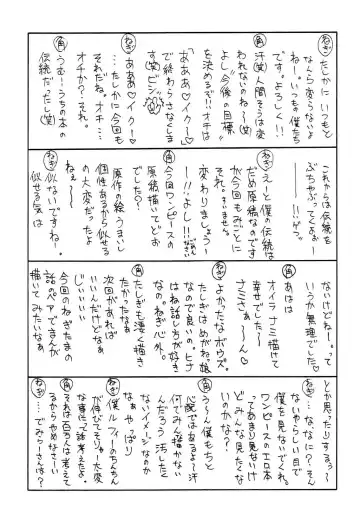 ねぎ たしかに いつもと
なんら変らないよ
ねー。いつもの僕たち
です。よろしく!!
角 汗(笑)人間そうは変
われないのね〜(笑)
よし今後の目標
を決めるで!!オチは
『あああ♡イク〜』
で終わらさなくしま
す(笑)ビシ
ねぎ あああ♡イク〜!
…たしかに今回も
それだね。オチ…
オチか?それ。
角 うむ!うちの本の
伝統だったし(笑)
これからは伝統を
ぶちやぶってくよぉー
!!ゲフ。
ねぎ えーと僕の伝統は
だめ原稿なのです
が今回もみごとに
それ。すいません。
変わりましょう〜
ー!!よし!!。
角 今回ワンピースの
原稿描いてどお
でした?
ねぎ 原作の絵うまいし
個性あるから似せる
の大変だったよ
ねぇ〜
角 似ないですね。
似せる気は
ないけどねー。って
いうか無理でした♡
角 あはは
オイラナミ描けて
幸せでした〜
ナミさぁ〜ん
ねぎ よかったなボウズ。
たしぎはめがね娘
なので良いの。ヒナ
はね話し方が好き
なの。ねぎ心外。
角 たしぎも凄く描き
たかったなぁ
次回があれば
いいんだけどなぁ
じぃぃぃぃ
今回のねぎたまの
話のペアでまんが
描いてみたいなぁ。
とか思ったりするっ〜
ねぎ …な、なに?そん
ないやらしい目で
僕を見ないでくれ。
ワンピースのエロ本
ってあまり見ないけ
どみんな見たくな
いのかな?
角 う〜ん僕もちと
心配ではあるよー汗
何でみんな描かない
んだろう 汚したく
ないイメージなのか
なぁやっぱり
ねぎ 僕ルフィーのちんちん
が伸びてそりゃー大変
な事件って話考えたよ
角 それは百万人は考えて
るからやめなさい〜
ねぎ …でみらーさんは?